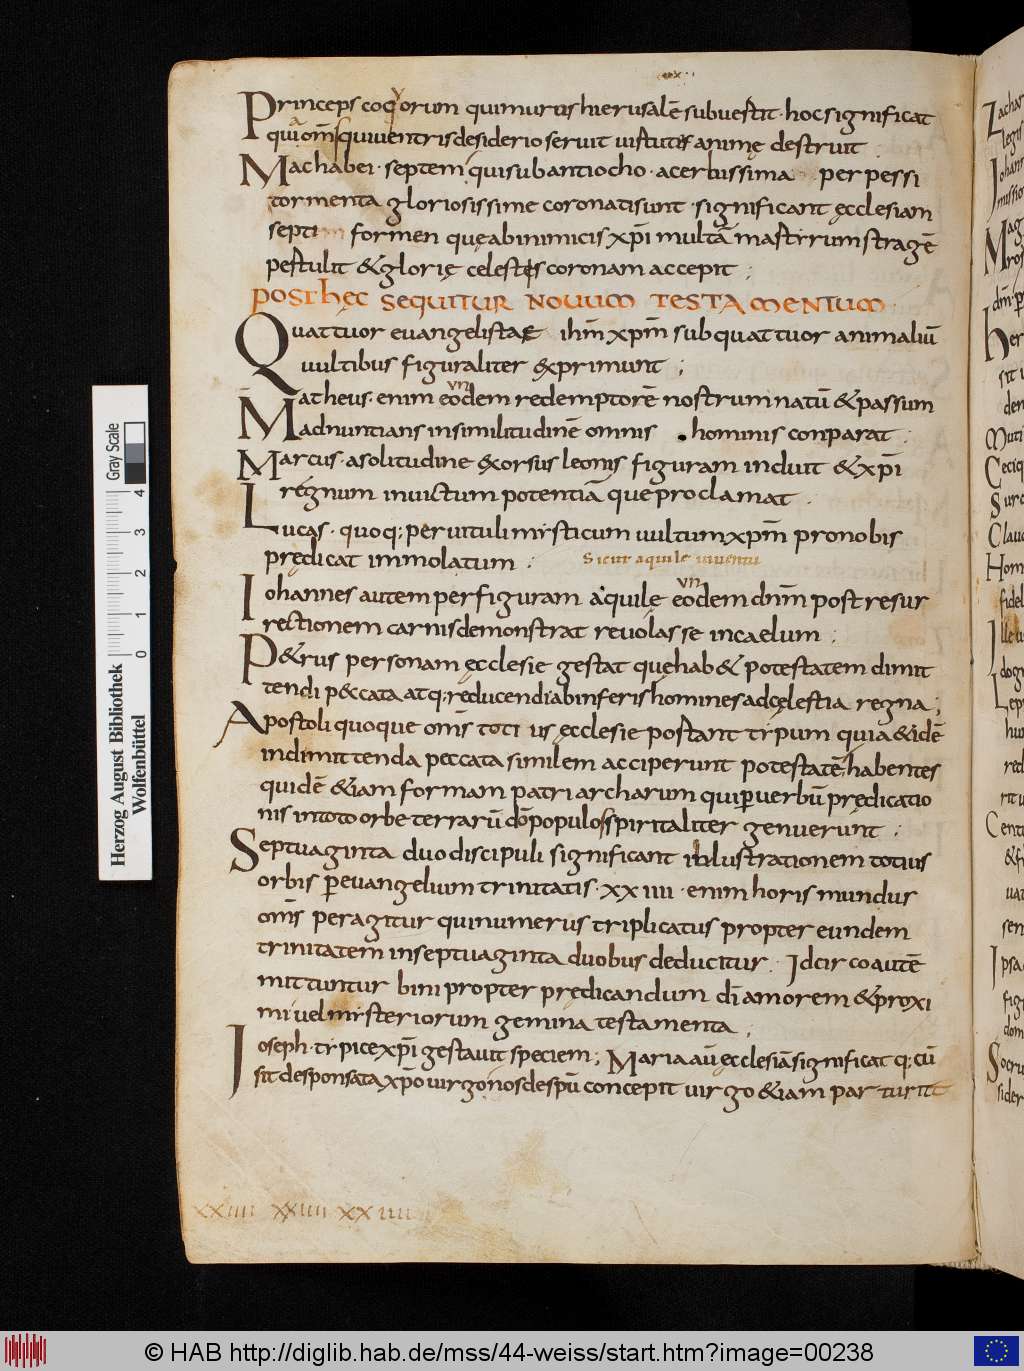 Princeps coqorum quimuros hierusalē subuestit · hoc significat
quia om̄s qui uentris desiderio seruit uirtutes animę destruit
Machabei · septem qui sub antiocho · acerbissima perpessi
tormenta gloriosissime coronati sunt · significant ęcclesiam
septi formen quę ab inimicis xp̄i multā martirum stragē
pertulit & glorię celestis coronam accepit ;
post hęc sequitur nouum testamentum
Quattuor euangelistae ihm̄ xpm̄ sub quattuor animaliū
uultibus figuraliter exprimunt ;
Matheus · enim eodem redemptorē nostrum natū & passum
Adnuntians in similitudinē omnis hominis conparat ·
Marcus · a solitudine exorsus leonis figuram induit & xp̄i
regnum inuictum potentiā que proclamat ·
Lucas · quoq; per uituli misticum uultum xpm̄ pro nobis
prędicat immolatum :
Sicut aquile iuuentu
Iohannes autem per figuram aquilę eodem dnm̄ post resur
rectionem carnis demonstrat reuolasse in caelum ;
P&rus personam ęcclesie gestat quę hab& potestatem dimit
tendi peccata atq; reducendi ab inferis homines ad cęlestia regna ;
Apostoli quoque om̄s totius ęcclesie portant tipum quia & idē
in dimittenda peccata similem acciperunt potestatē, habentes
quidē &iam formam patriarcharum qui p uerbū prędicatio
nis in toto orbe terrarū dō populos spiritaliter genuerunt ;
Septuaginta duo discipuli significant inlustrationem totius
orbis p euangelium trinitatis · xxiiii · enim horis mundus
om̄s peragitur qui numerus triplicatus propter eundem
trinitatem in septuaginta duobus deducitur · Idcirco autē
mittuntur bini propter prędicandum dī amorem & proxi
mi uel misteriorum gemina testamenta ;
Ioseph · tipice xp̄i gestauit speciem ; Maria aū ęcclesiā significat q; cū
sit desponsata xp̄o uirgo nos de spū concepit uirgo &iam parturiit
xxiiii xxiiii xxiiii
Herzog August Bibliothek
Wolfenbüttel
Gray Scale
0 1 2 3 4
© HAB http://diglib.hab.de/mss/44-weiss/start.htm?image=00238